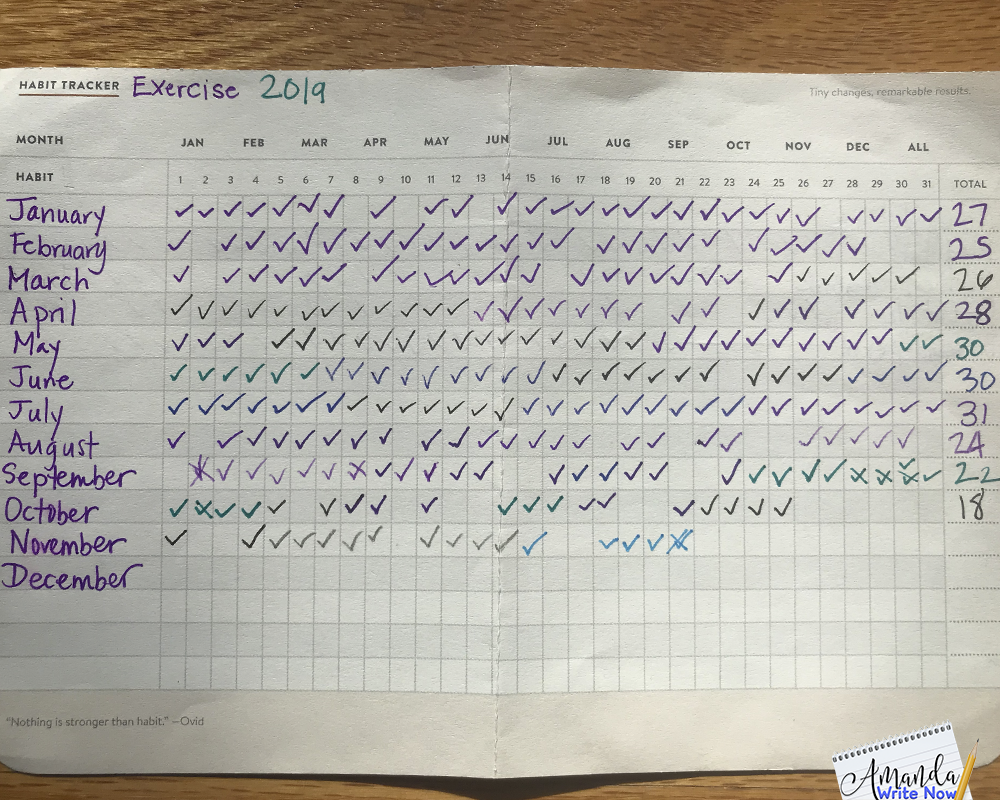 HABIT TRACKER Exercise 2019
Tiny changes, remarkable results.
MONTH JAN FEB MAR APR MAY JUN JUL AUG SEP OCT NOV DEC ALL
HABIT 1 2 3 4 5 6 7 8 9 10 11 12 13 14 15 16 17 18 19 20 21 22 23 24 25 26 27 28 29 30 31 TOTAL
January 27
February 25
March 26
April 28
May 30
June 30
July 31
August 24
September 22
October 18
November
December
"Nothing is stronger than habit." —Ovid
Amanda
Write Now